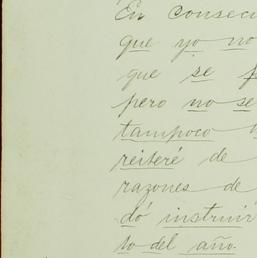 En consecu
que yo no
que se
pero no se
tampoco
reiteré de
razones de
dó instruir
to del año.